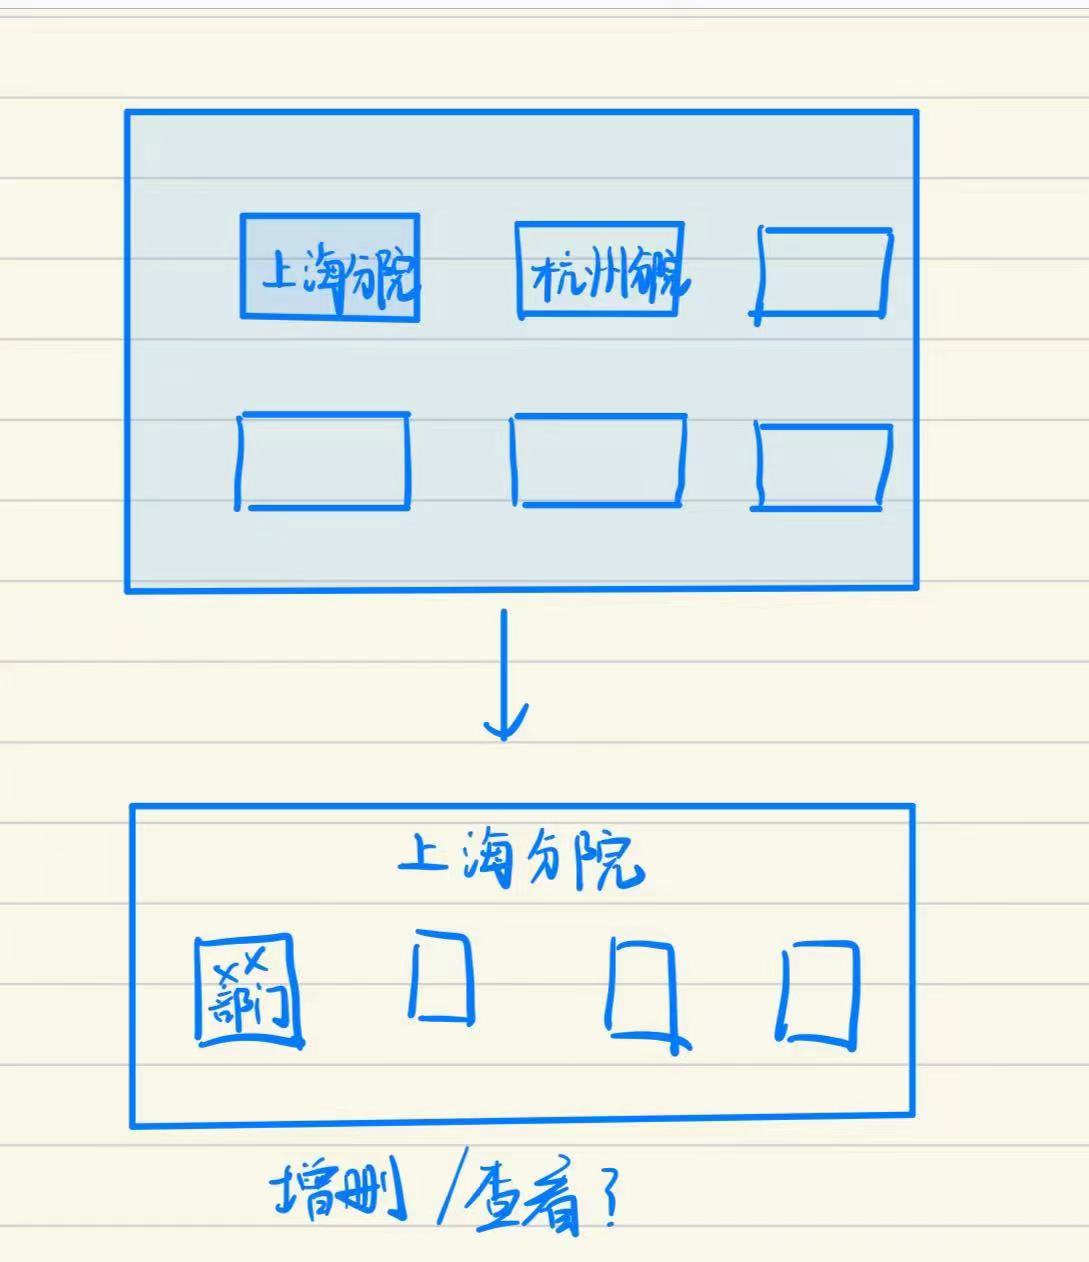 上海分院
杭州分院
上海分院
XX
部门
增删/查看?